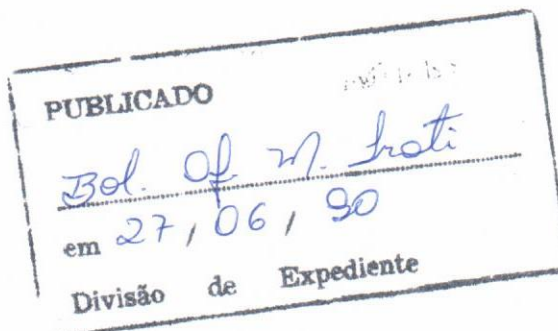 PUBLICADO
Bol. Of. M. Irati
em 27/06/90
Divisão de Expediente